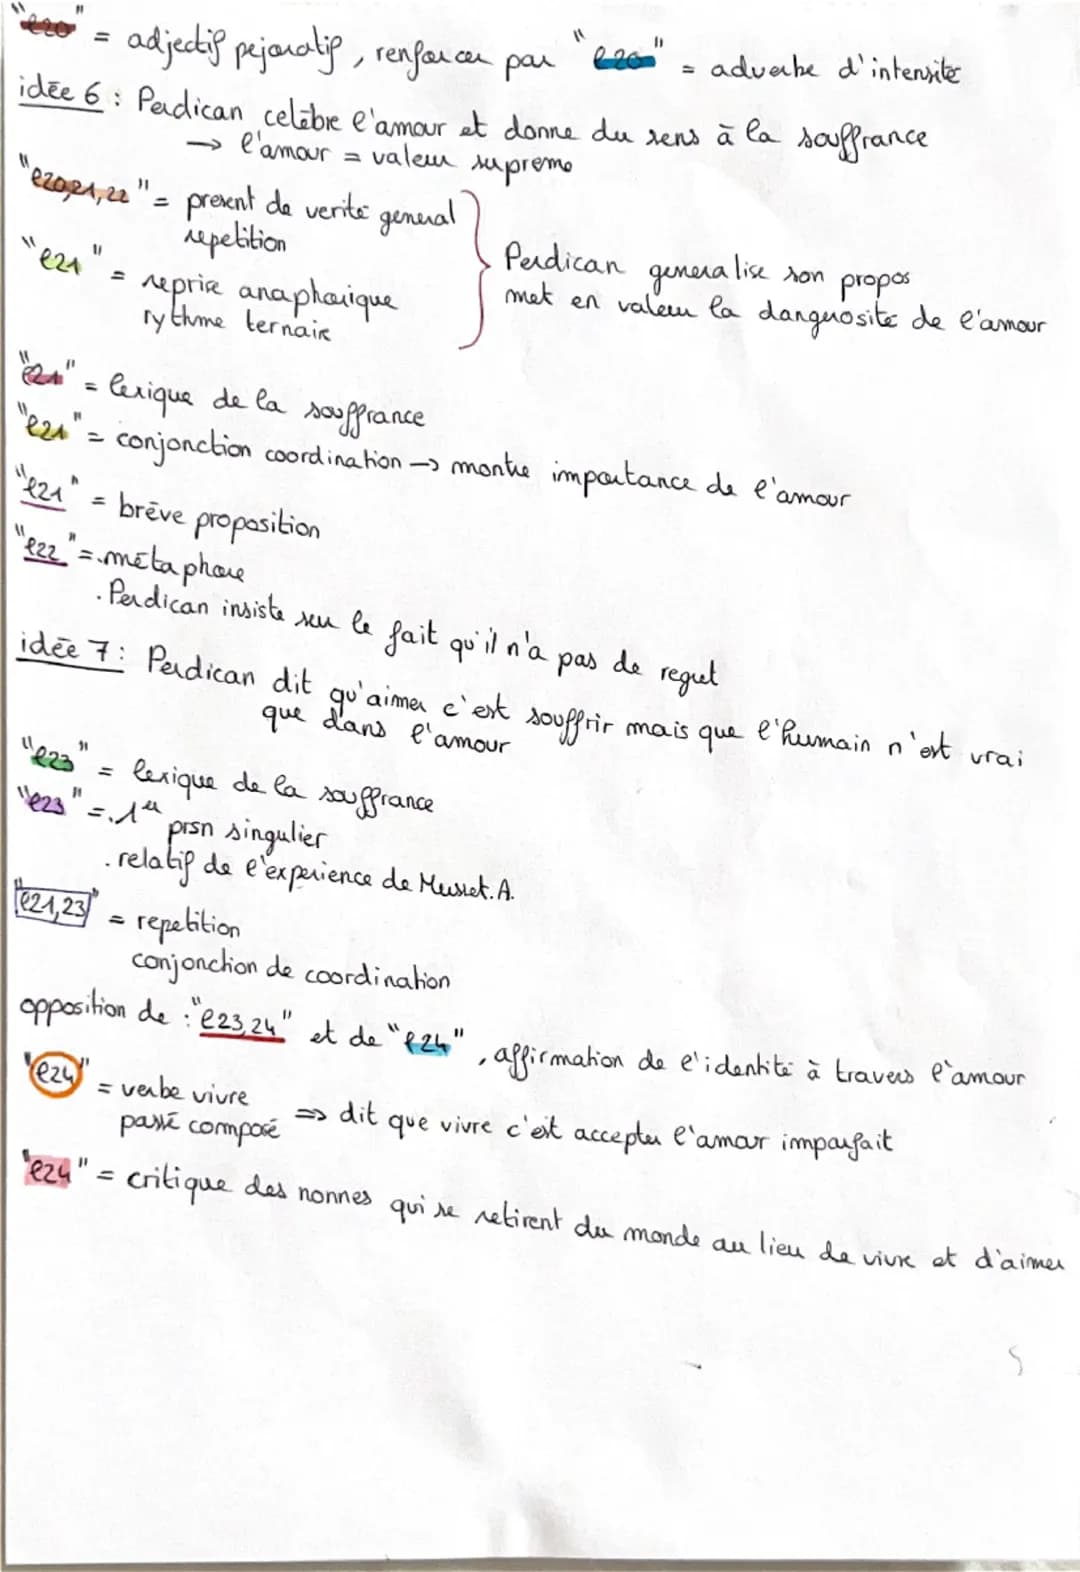 "l20" = adjectif pejoratif, renforcer par "l20" = adverbe d'intensité
idée 6 : Perdican celèbre l'amour et donne du sens à la souffrance
→ l'amour = valeur supreme
"l20,21,22" = present de verité general
repetition
"l21" = reprise anaphorique
rythme ternaire
Perdican generalise son propos
met en valeur la dangurosité de l'amour
"l21" = lexique de la souffrance
"l21" = conjonction coordination → montre importance de l'amour
"l21" = brève proposition
"l22" = . métaphore
. Perdican insiste sur le fait qu'il n'a pas de regret
idée 7 : Perdican dit qu'aimer c'est souffrir mais que l'humain n'est vrai
que dans l'amour
"l23" = lexique de la souffrance
"l23" = . 1er prsn singulier
. relatif de l'experience de Musset.A.
"l21,23" = repetition
conjonction de coordination
opposition de : "l23,24" et de "l24", affirmation de l'identité à travers l'amour
"l24" = verbe vivre
passé composé ⇒ dit que vivre c'est accepter l'amour imparfait
"l24" = critique des nonnes qui se retirent du monde au lieu de vivre et d'aimer